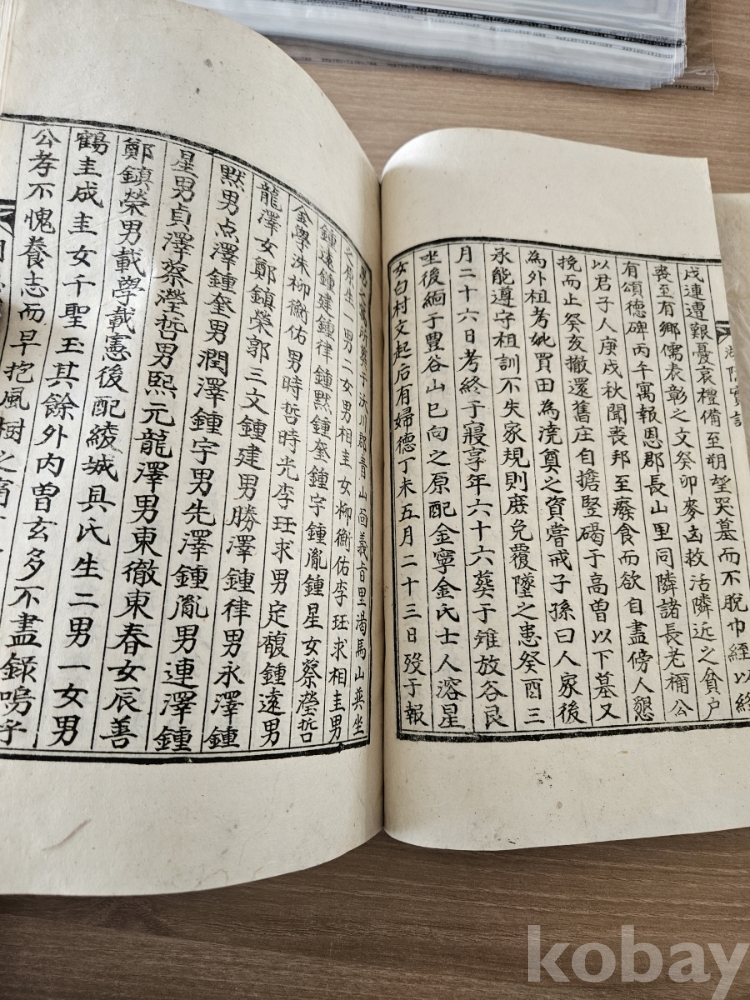 戌連遭艱憂哀禮備至朔望哭墓而不脫巾絰以終
喪至有鄉儒表彰之文癸卯麥凶救活隣近之貧戶
有頌德碑丙午寓報恩郡長山里同隣諸長老稱公
以君子人庚戌秋聞喪邦至廢食而欲自盡傍人懇
挽而止癸亥撤還舊庄自擔竪碣于高曾以下墓又
為外祖考妣買田為澆奠之資嘗戒子孫曰人家後
承能遵守祖訓不失家規則庶免覆墜之患癸酉三
月二十六日考終于寢享年六十六葬于雉放谷艮
坐後緬于豊谷山巳向之原配金寧金氏士人溶星
女白村文起后有婦德丁未五月二十三日歿于報
川郡青山面義旨里渴馬山巽坐
之原生一男二女男相圭女柳衡佑李玨求相圭男
鍾遠鍾建鍾律鍾默鍾奎鍾宇鍾胤鍾星女蔡瀅哲
金學洙柳衡佑男時哲時光李玨求男定馥鍾遠男
龍澤女鄭鎮榮郭三文鍾建男勝澤鍾律男永澤鍾
默男点澤鍾奎男潤澤鍾宇男先澤鍾胤男連澤鍾
星男貞澤蔡瀅哲男熙元龍澤男東徹東春女辰善
鄭鎮榮男載學載憲後配綾城具氏生二男一女男
鶴圭成圭女千聖玉其餘外內曾玄多不盡錄嗚乎
公孝不愧養志而早抱風樹之痛
kobay